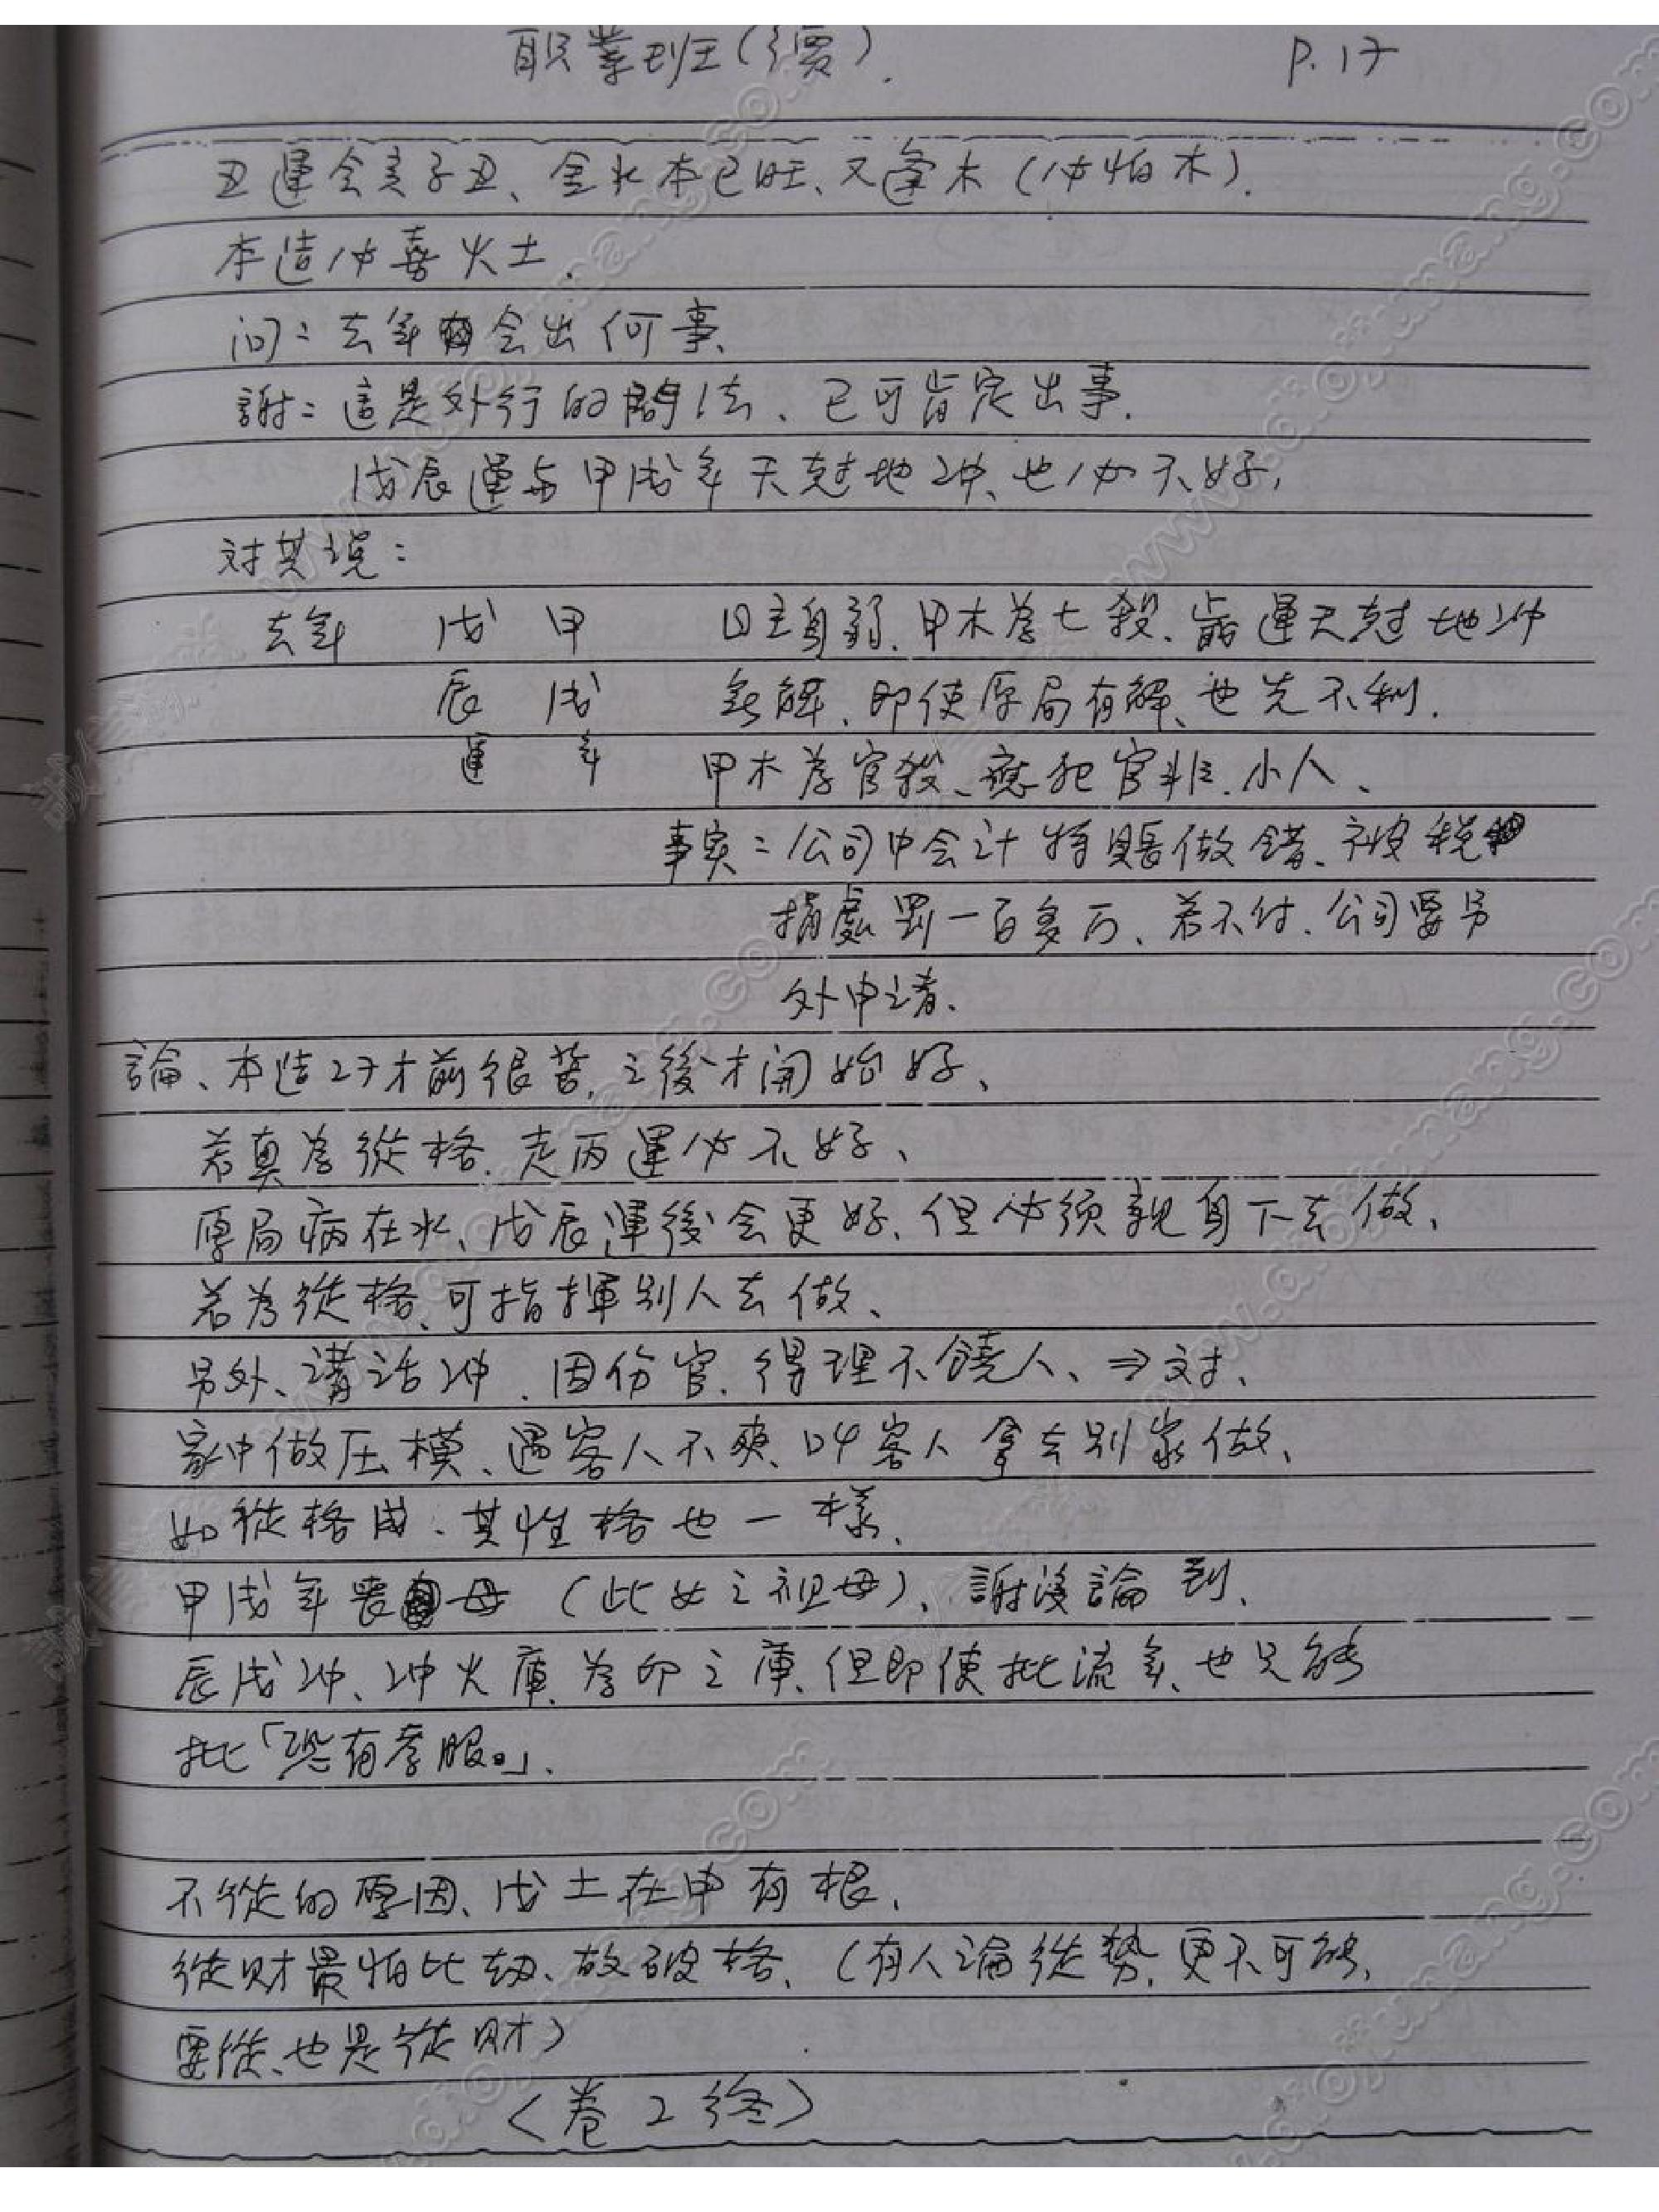 职業班(續). P.17
丑運会亥子丑、金水本已旺、又逢木(必怕木).
本造必喜火土.
问:去年会出何事、
謝:這是外行的問法、已可肯定出事.
戊辰運与甲戌年天尅地冲、也必不好,
对其説:
去年 戊 甲 日主身弱.甲木為七殺.歲運天尅地冲
辰 戌 無解、即使原局有解、也先不利.
運 年 甲木為官殺、應犯官非.小人、
事实:公司中会计将賬做錯、被税
捐處罰一百多万、若不付.公司要另
外申请.
論、本造27才前很苦,之後才開始好、
若真為從格.走丙運必不好、
原局病在水、戊辰運後会更好,但必须親身下去做、
若為從格、可指揮別人去做、
另外、講话冲.因伤官.得理不饒人、⇒对、
家中做压模、遇客人不爽.叫客人拿去別家做、
如從格成、其性格也一様、
甲戌年喪母(此女之祖母)、謝没論到、
辰戌冲、冲火庫為印之庫、但即使批流年、也只能
批「恐有孝服。」、
不從的原因、戊土在申有根、
從财最怕比劫、故破格、(有人論從勢.更不可能,
要從、也是從财)
〈卷2终〉